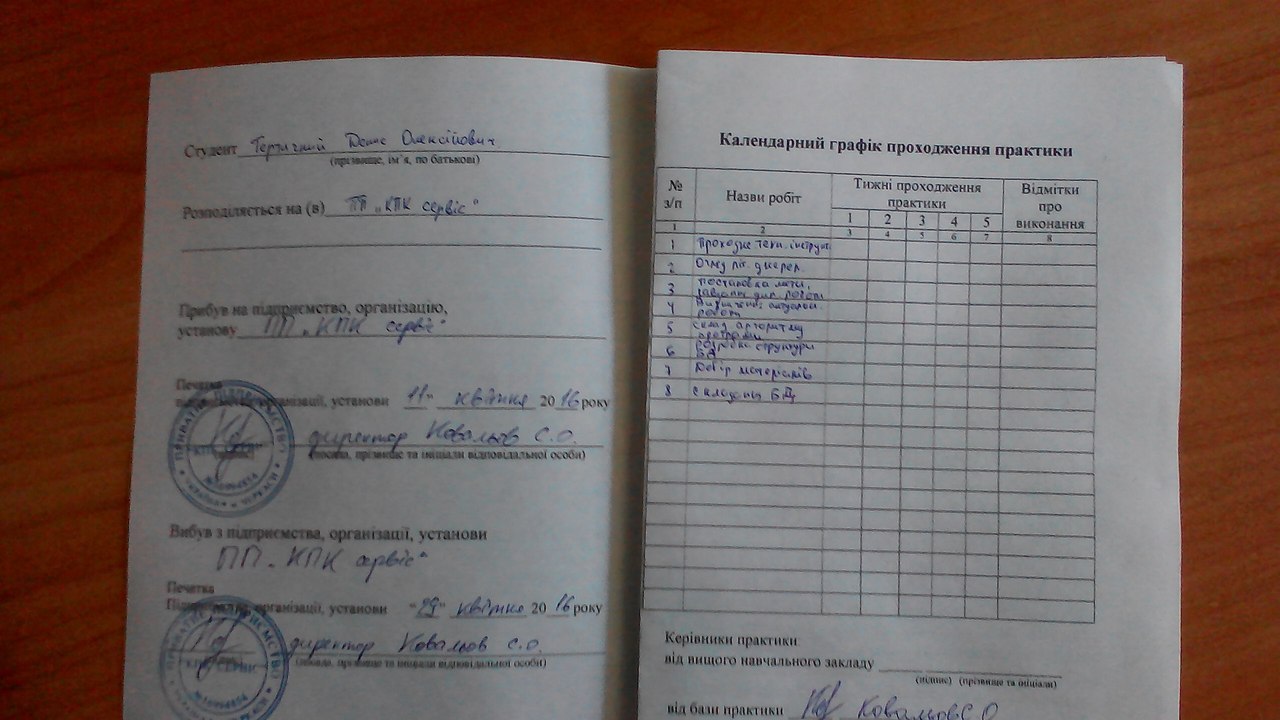 Студент Денис Олексійович
(прізвище, ім'я, по батькові)
Розподіляється на (в) ПП „КПК сервіс“
Прибув на підприємство, організацію,
установу ПП „КПК сервіс“
Печатка
організації, установи „11“ квітня 2016 року
директор Ковальов С.О.
(посада, прізвище та ініціали відповідальної особи)
Вибув з підприємства, організації, установи
ПП „КПК сервіс“
Печатка
організації, установи “29“ квітня 2016 року
директор Ковальов С.О.
(посада, прізвище та ініціали відповідальної особи)
Календарний графік проходження практики
№ з/п Назви робіт Тижні проходження практики Відмітки про виконання
1 2 3 4 5
1 2 3 4 5 6 7 8
1 техн. інструкт
2 Огляд літ. джерел
3 Постановка мети,
завдання дип. роботи
4 актуальн.
роботи
5 склад. алгоритму
програми
6 розробка структури
БД
7 Добір матеріалів
8 складання БД
Керівники практики
від вищого навчального закладу
(підпис) (прізвище та ініціали)
від бази практики Ковальов С.О